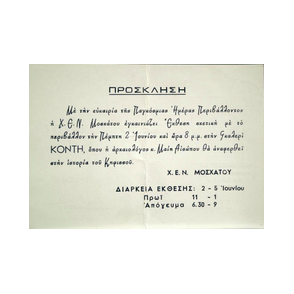 ΠΡΟΣΚΛΗΣΗ
Μὲ τὴν εὐκαιρία τῆς Παγκόσμιας Ἡμέρας Περιβάλλοντος
ἡ Χ.Ε.Ν. Μοσχάτου ἐγκαινιάζει Ἔκθεση σχετικὴ μὲ τὸ
περιβάλλον τὴν Πέμπτη 2 Ἰουνίου καὶ ὥρα 8 μ.μ. στὴν Γκαλερὶ
ΚΟΝΤΗ, ὅπου ἡ ἀρχαιολόγος κ. θὰ ἀναφερθεῖ
στὴν ἱστορία τοῦ Κηφισσοῦ.
Χ.Ε.Ν. ΜΟΣΧΑΤΟΥ
ΔΙΑΡΚΕΙΑ ΕΚΘΕΣΗΣ: 2 - 5 Ἰουνίου
Πρωῒ 11 - 1
Ἀπόγευμα 6.30 - 9